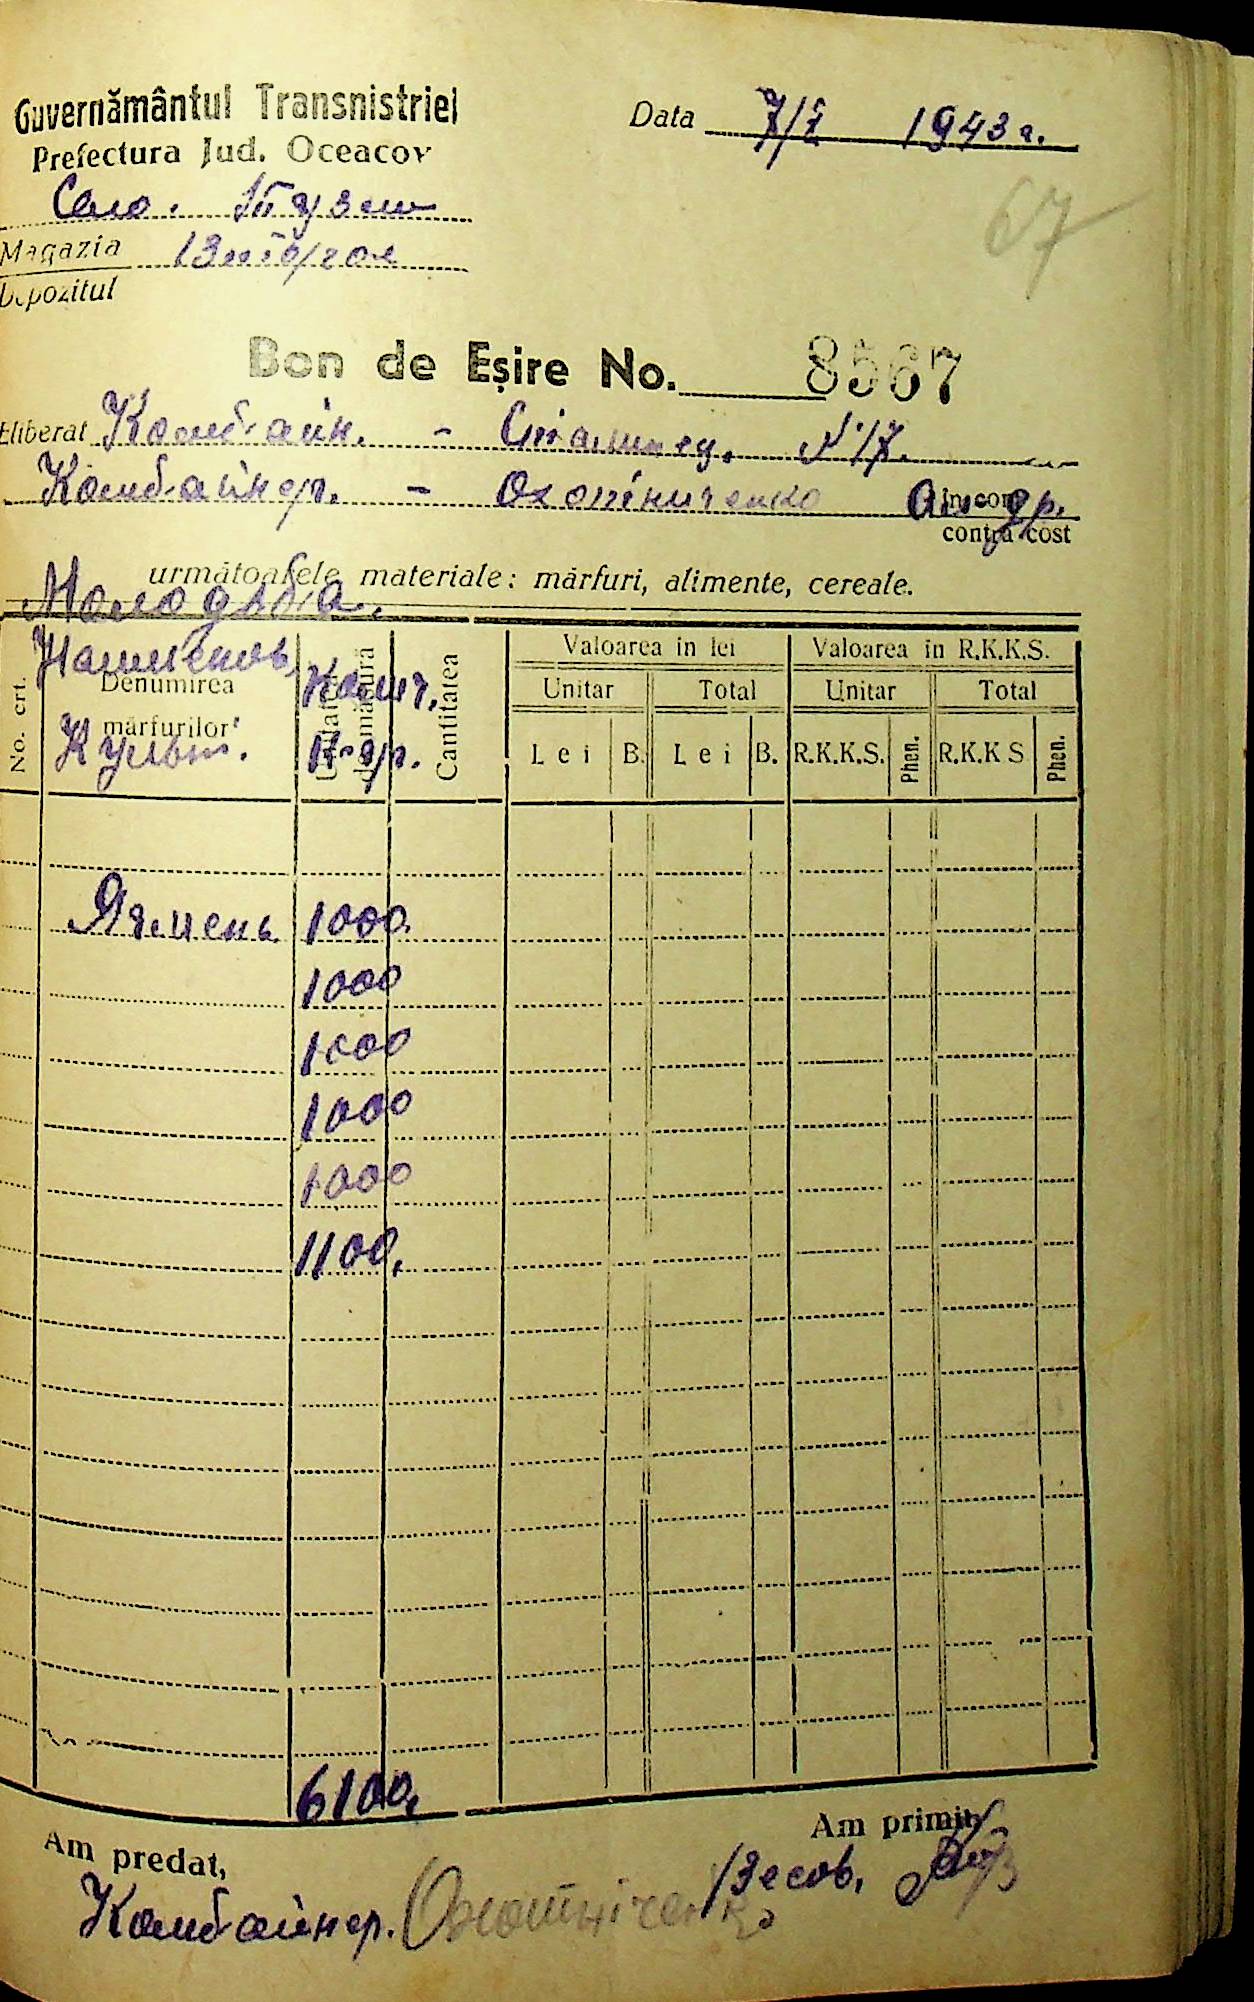 Guvernământul Transnistriei
Data 7/X 1943 г.
Prefectura Jud. Oceacov
Село. Тузли
67
Magazia
Depozitul
Bon de Eșire No. 8567
Eliberat Комбайн. - Сталинец. №17.
Комбайнер. - Охотніченко
in cont
contra cost
următoarele materiale: mărfuri, alimente, cereale.
Молодьба.
No. crt.
Наименов.
Denumirea mărfurilor
Культ.
Колич.
К-гр.
Unitatea de măsură
Cantitatea
Valoarea in lei
Valoarea in R.K.K.S.
Unitar Total Unitar Total
Lei B. Lei B. R.K.K.S. Phen. R.K.K S Phen.
Ячмень 1000.
1000
1000
1000
1000
1100.
6100.
Am predat,
Am primit,
Комбайнер. Охотніченко
Весов.